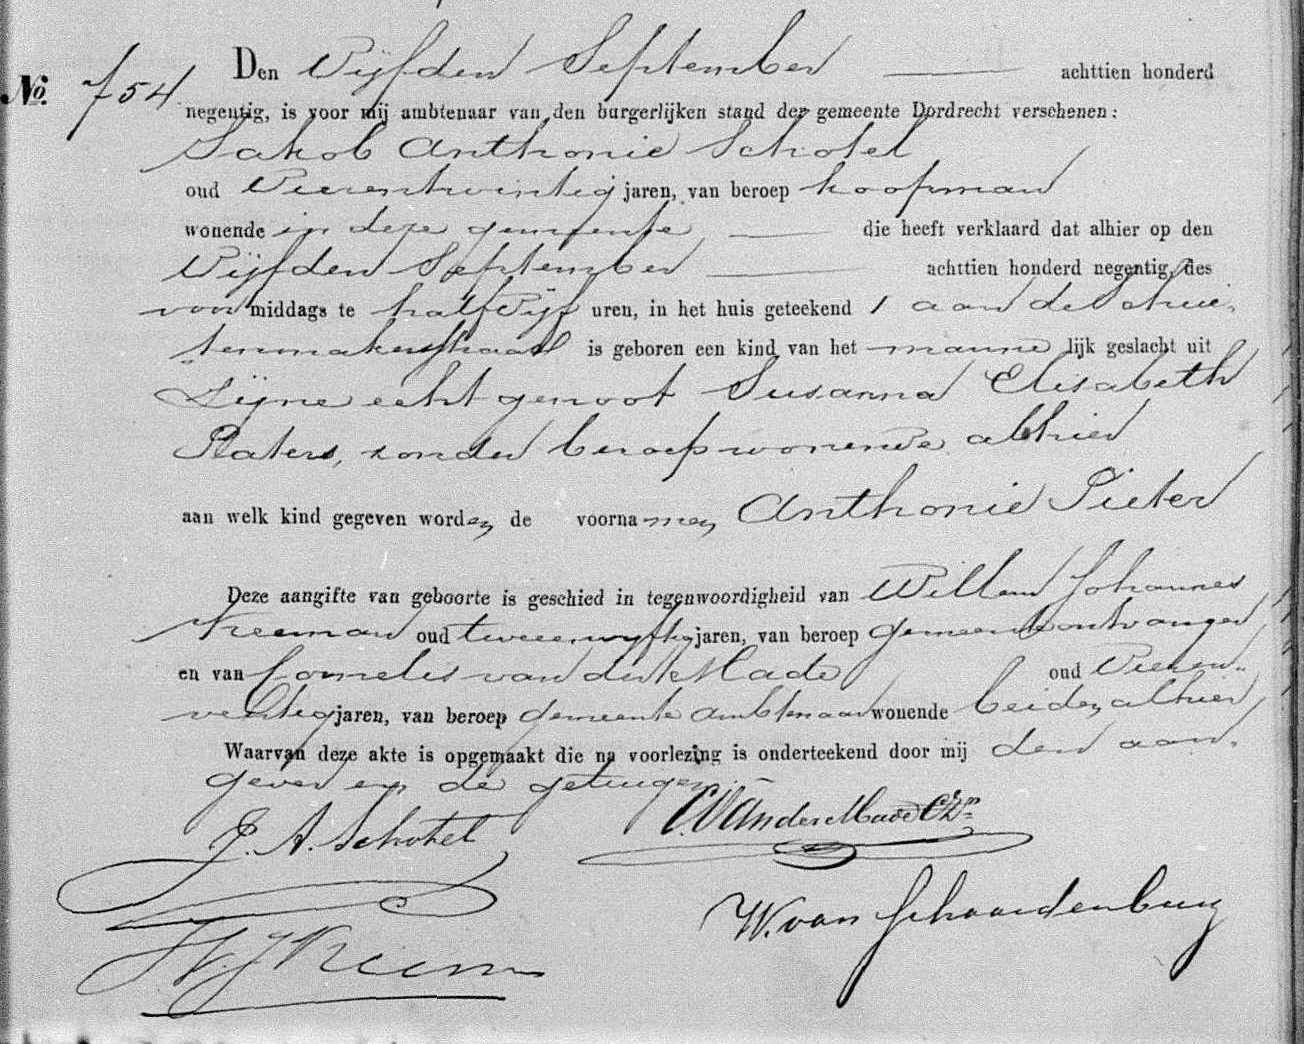 No. 754 Den Vijfden September achttien honderd
negentig, is voor mij ambtenaar van den burgerlijken stand der gemeente Dordrecht verschenen:
Jakob Anthonie Schotel
oud Vierentwintig jaren, van beroep koopman
wonende in deze gemeente, die heeft verklaard dat alhier op den
Vijfden September achttien honderd negentig, des
voormiddags te half Vijf uren, in het huis geteekend 1 aan de Schui-
tenmakersstraat is geboren een kind van het mannelijk geslacht uit
Zijne echtgenoot Susanna Elisabeth
Raters, zonder beroep wonende alhier
aan welk kind gegeven worden de voornamen Anthonie Pieter
Deze aangifte van geboorte is geschied in tegenwoordigheid van Willem Johannes
Kreeman oud tweeenvyftig jaren, van beroep gemeenteontvanger
en van Cornelis van der Made oud Vieren-
veertig jaren, van beroep gemeente ambtenaar wonende beiden alhier
Waarvan deze akte is opgemaakt die na voorlezing is onderteekend door mij den aan-
gever en de getuigen.
J. A. Schotel C. van der Made Czn
W. van Schaardenburg
W J